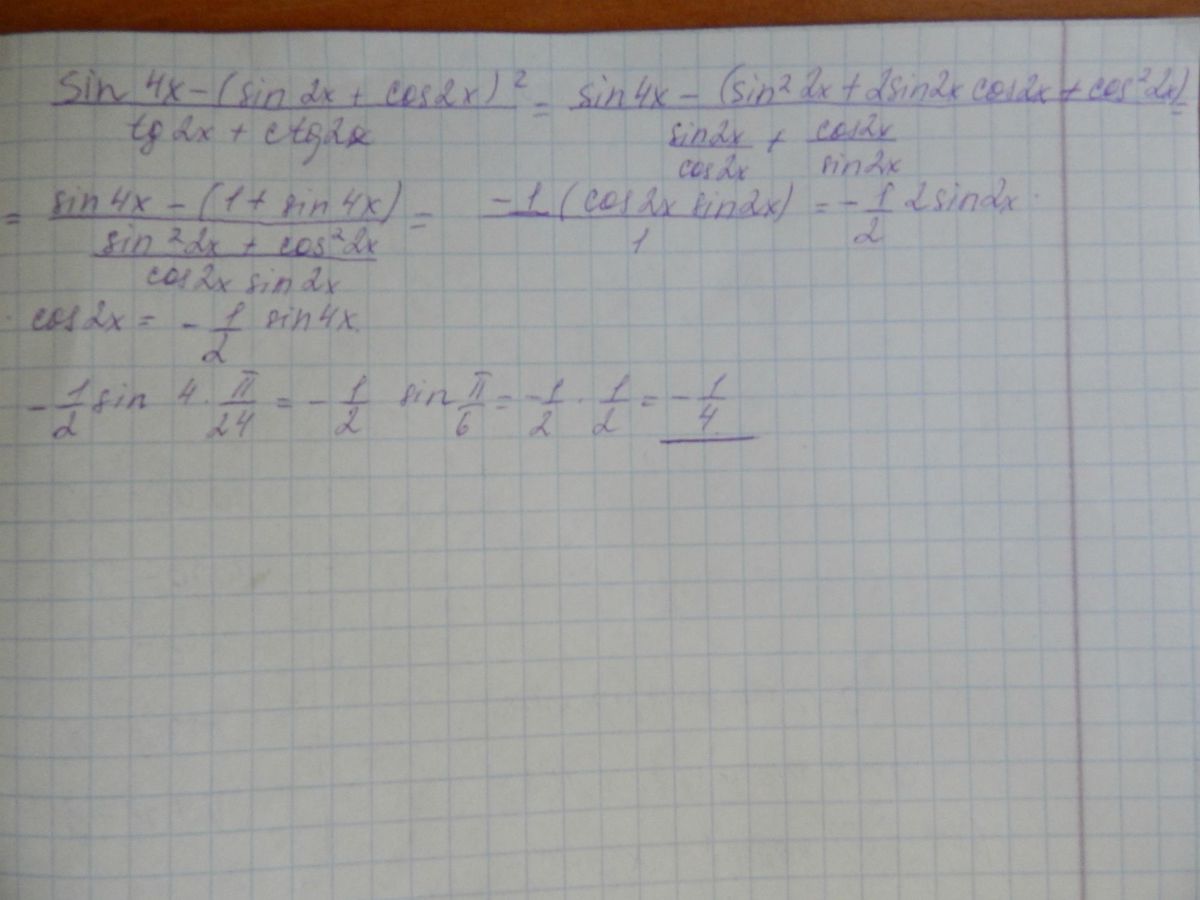 (sin 4x - (sin 2x + cos 2x)²)/(tg 2x + ctg 2x) = (sin 4x - (sin² 2x + 2 sin 2x cos 2x + cos² 2x))/(sin 2x/cos 2x + cos 2x/sin 2x) =
= (sin 4x - (1 + sin 4x))/((sin² 2x + cos² 2x)/(cos 2x sin 2x)) = (-1 (cos 2x sin 2x))/1 = -1/2 2 sin 2x ·
· cos 2x = -1/2 sin 4x.
-1/2 sin 4 · π/24 = -1/2 sin π/6 = -1/2 · 1/2 = -1/4